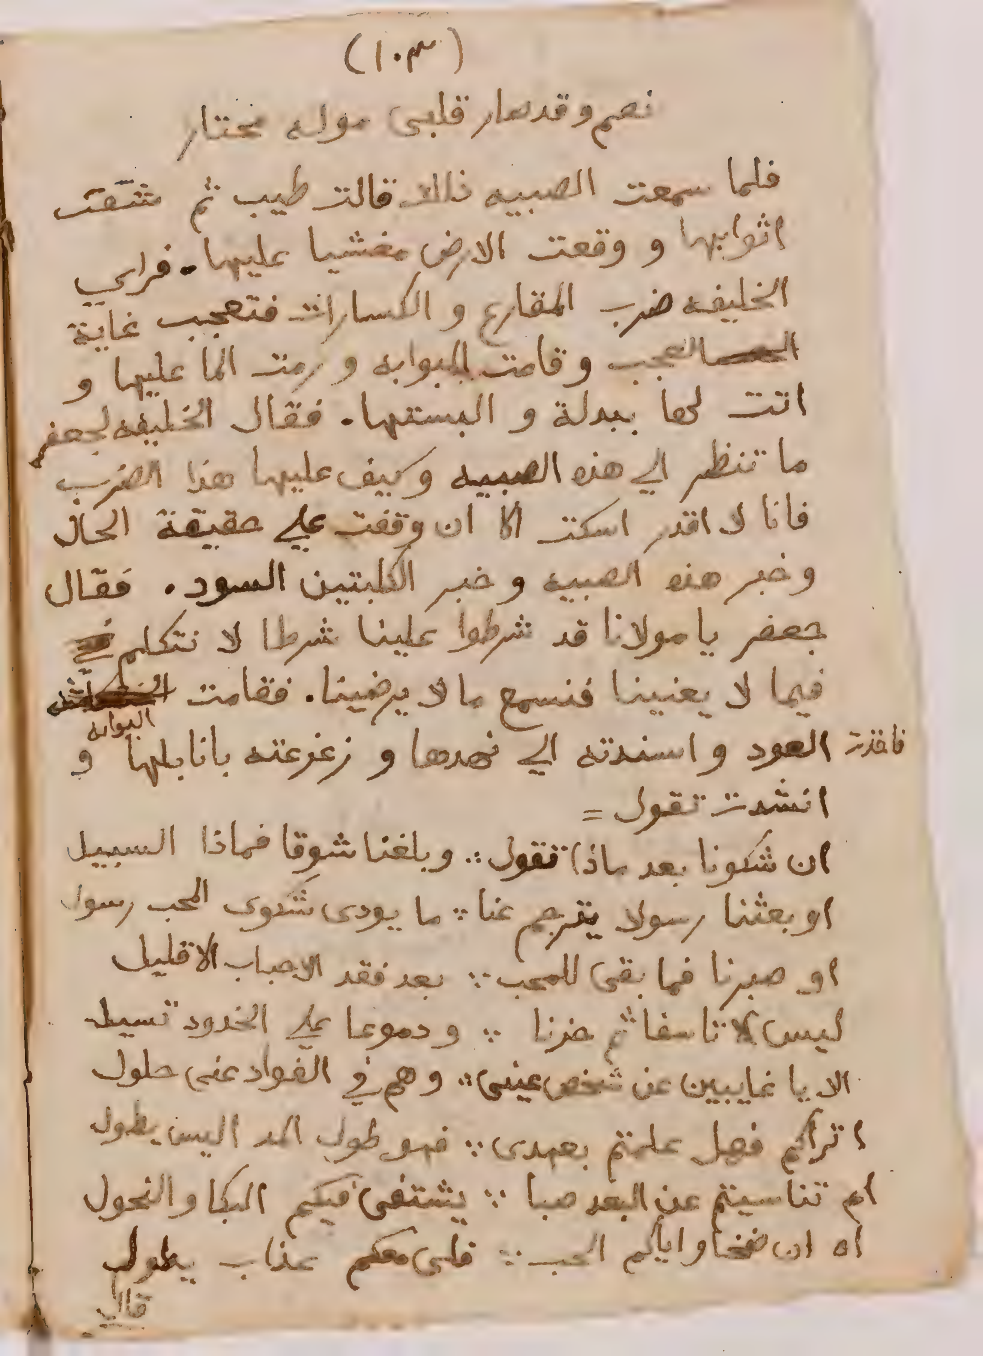 (١٠٣)
نعم وقد صار قلبى موله محتار
فلما سمعت الصبيه ذلك قالت طيب ثم شقت
اثوابها و وقعت الارض مغشيا عليها. فراي
الخليفه ضرب المقارع و الكسارات فتعجب غاية
العجب وقامت البوابه و رمت الما عليها و
اتت لها ببدلة و البستها. فقال الخليفه لجعفر
ما تنظر الي هذه الصبيه وكيف عليها هذا الضرب
فانا لا اقدر اسكت الا ان وقفت علي حقيقة الحال
و خبر هذه الصبيه و خبر الكلبتين السود. فقال
جعفر يا مولانا قد شرطوا علينا شرطا لا نتكلم
فيما لا يعنينا فنسمع ما لا يرضينا. فقامت البوابه
فاخذت العود و اسندته الي نهدها و زغزعته باناملها و
انشدت تقول =
ان شكونا بعد ماذا تقول ∴ وبلغنا شوقا فماذا السبيل
او بعثنا رسولا يترجم عنا ∴ ما يودى شكوى المحب رسول
او صبرنا فما بقى للمحب ∴ بعد فقد الاحباب الا قليل
ليس الا تاسفا ثم حزنا ∴ ودموعا علي الخدود تسيل
الا يا غايبين عن شخص عينى ∴ وهم في الفواد عنى حلول
اتراكم فهل علمتم بعهدى ∴ فهو طول المد اليس يطول
ام تناسيتم عن البعد صبا ∴ يشتفى فيكم البكا والنحول
اه ان ضمنا واياكم الحب ∴ فلى معكم عذاب يطول
قال